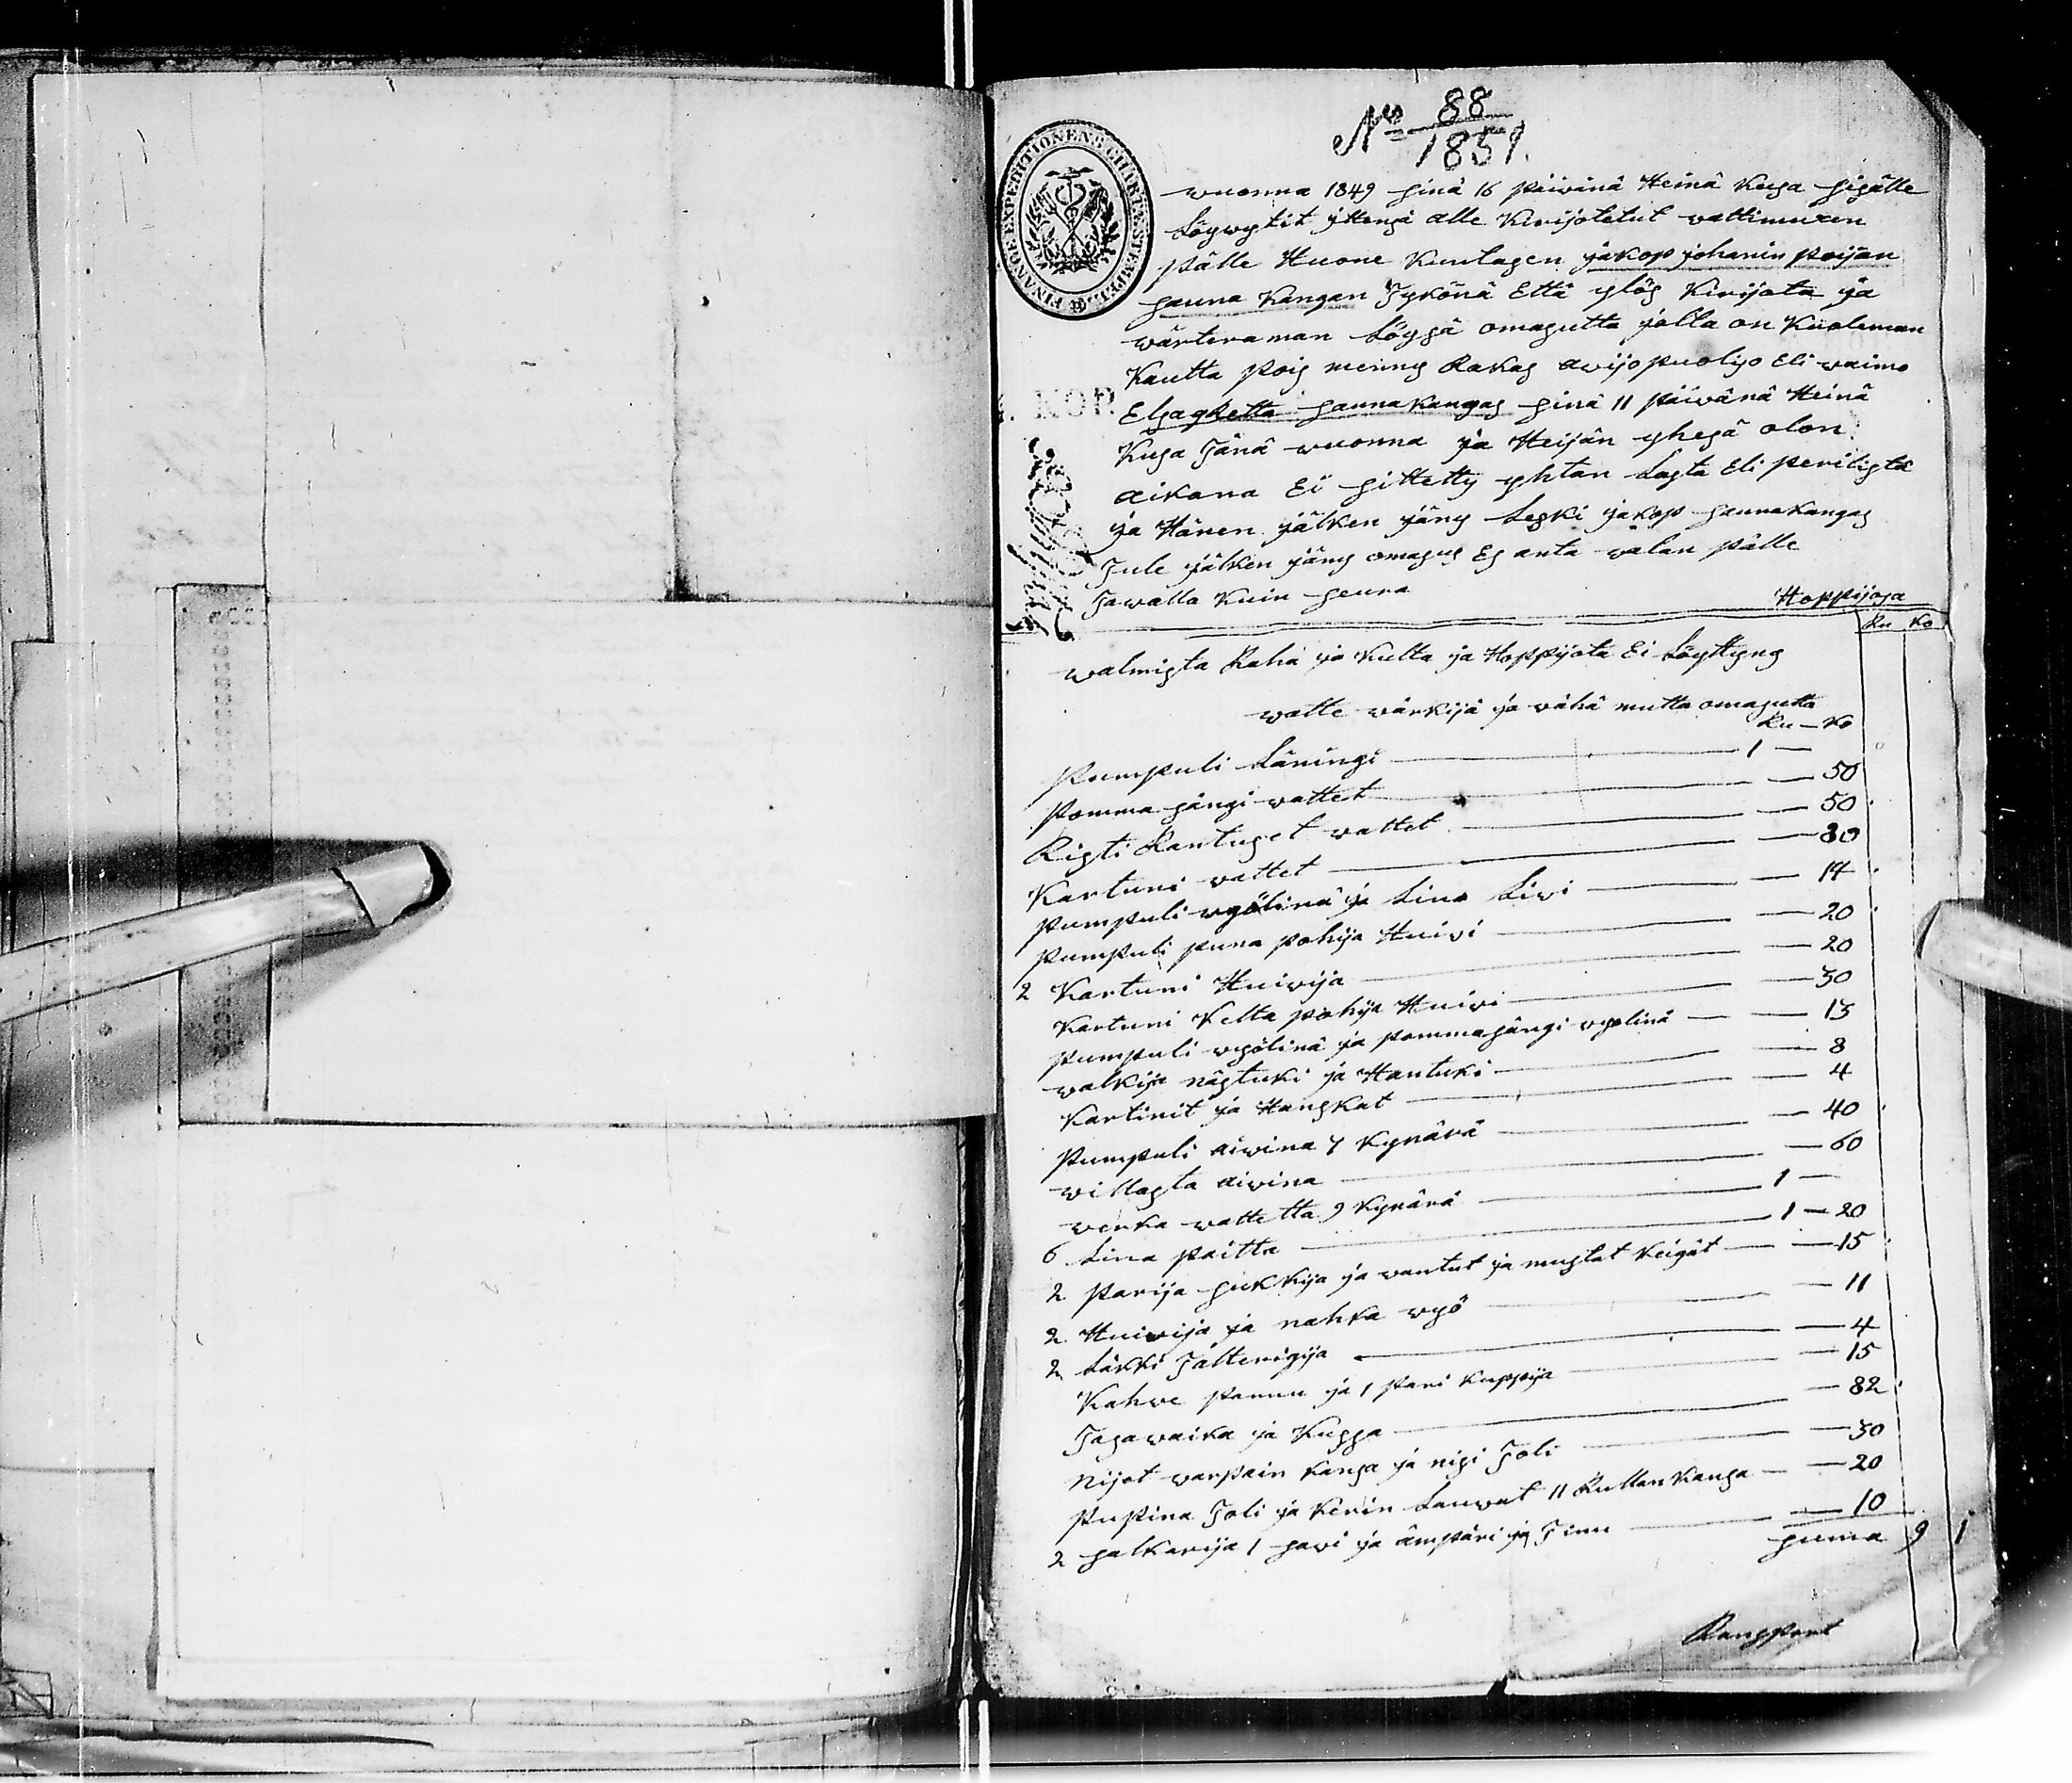 No 88
1851.
FINANCE EXPEDITIONENS CHARTÆ STEMPEL
wuonna 1849 sinä 16 päivänä Heinä Kusa sisälle
Löywytit yttensä alle Kirijotetut vattimuxen
pälle Huone Kuntasen jakop johanin poijan
sauna Kangan Tykönä Että ylös Kirijota ja
wärteraman Löysä omasutta jolla on Kuoleman
Kautta pois menny Rakas avijopuolijo Eli waimo
KOP.
Elsagretta saunakangas sinä 11 päivänä Heinä
Kusa Tänä wuonna ja Heijän yhesä olon
aikana Ei sittetty yhtan Lasta Eli perilistä
ja Hänen jälken jäny Leski jakop saunakangas
Tule jälken jäny omasus Es anta valan pälle
Tawalla Kuin seura
Hoppijasa
Ru Ko
walmista Raha ja Kulta ja Hoppijota Ei Löyttyny
watte värkijä ja vähä mutta omasutta
Ru – Ko
Pumpuli Läningi 1 —
Pomma sängi vattet — 50
Risti Rantuset vattet — 50
Kartuni vattet — 80
Pumpuli wyölinä ja Lina Livi — 14
Pumpuli puna pohija Huivi — 20
2 Kartuni Huivija — 20
Kartuni Kelta pohija Huivi — 30
Pumpuli wyölinä ja pommasängi wyolinä — 13
walkija nästuki ja Hantuki — 8
Kartinit ja Hanskat — 4
Pumpuli aivina 7 Kynärä — 40
willasta aivina — 60
verka vattetta 9 Kynärä 1 —
6 Lina paitta 1 – 20
2 Parija sukkija ja vantut ja mustat Keigät — 15
2 Huivija ja nahka wyö — 11
2 Läkki Tälterigija — 4
Kahwe pannu ja 1 pari Kuppija — 15
Tasavaika ja Kuppa — 82
Nijot varpain kansa ja nigi Toli — 30
Pupina Toli ja Kerin Lauvat 11 Rullan Kansa — 20
2 salkarija 1 savi ja ämpäri ja Tinu — 10
suma 9 1
Ransport